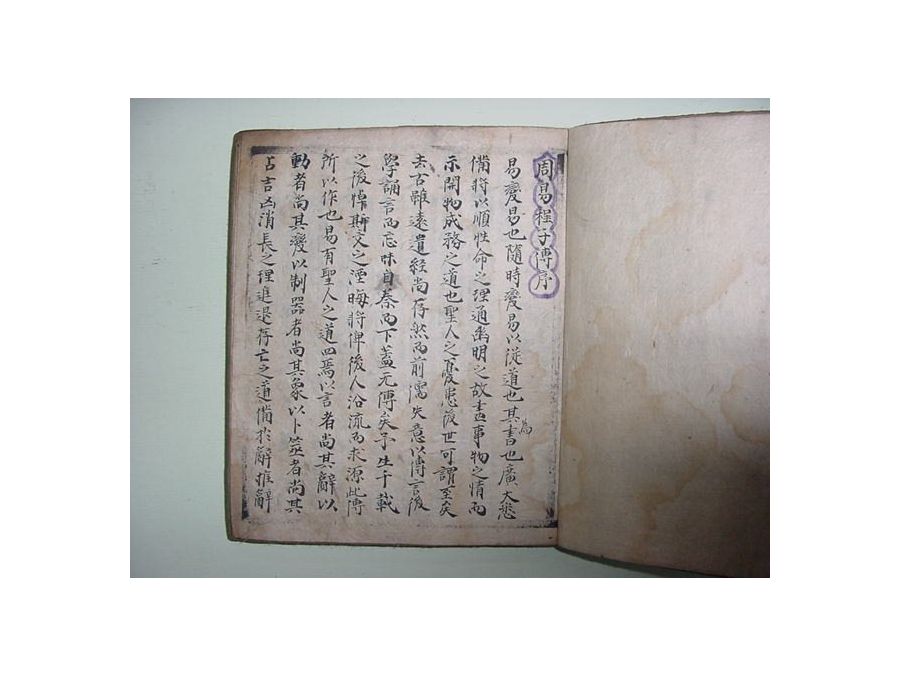 周易程子傳序
易變易也隨時變易以從道也其為書也廣大悉
備將以順性命之理通幽明之故盡事物之情而
示開物成務之道也聖人之憂患後世可謂至矣
去古雖遠遺經尚存然而前儒失意以傳言後
學誦言而忘味自秦而下蓋无傳矣予生千載
之後悼斯文之湮晦將俾後人沿流而求源此傳
所以作也易有聖人之道四焉以言者尚其辭以
動者尚其變以制器者尚其象以卜筮者尚其
占吉凶消長之理進退存亡之道備於辭推辭